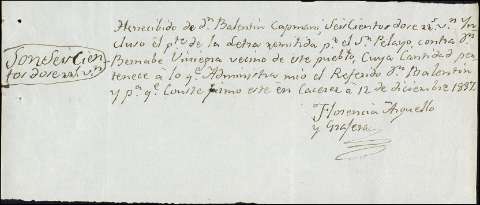 He recibido de Dn Balentin Capmani, Seiscientos doce rrs. vn. In
cluso el pte de la letra remitida pr. el Sr. Pelayo, contra Dn
Bernabe Viniegra vecino de este pueblo, Cuya Cantidad per
tenece a lo qe. Administra mio el Referido Dn Balentin
y pa. qe. Conste firmo este en Caceres a 12 de diciembre 1837.
Florencia Arguello
y Grafera
Son Seiscien
tos doce rrs. vn